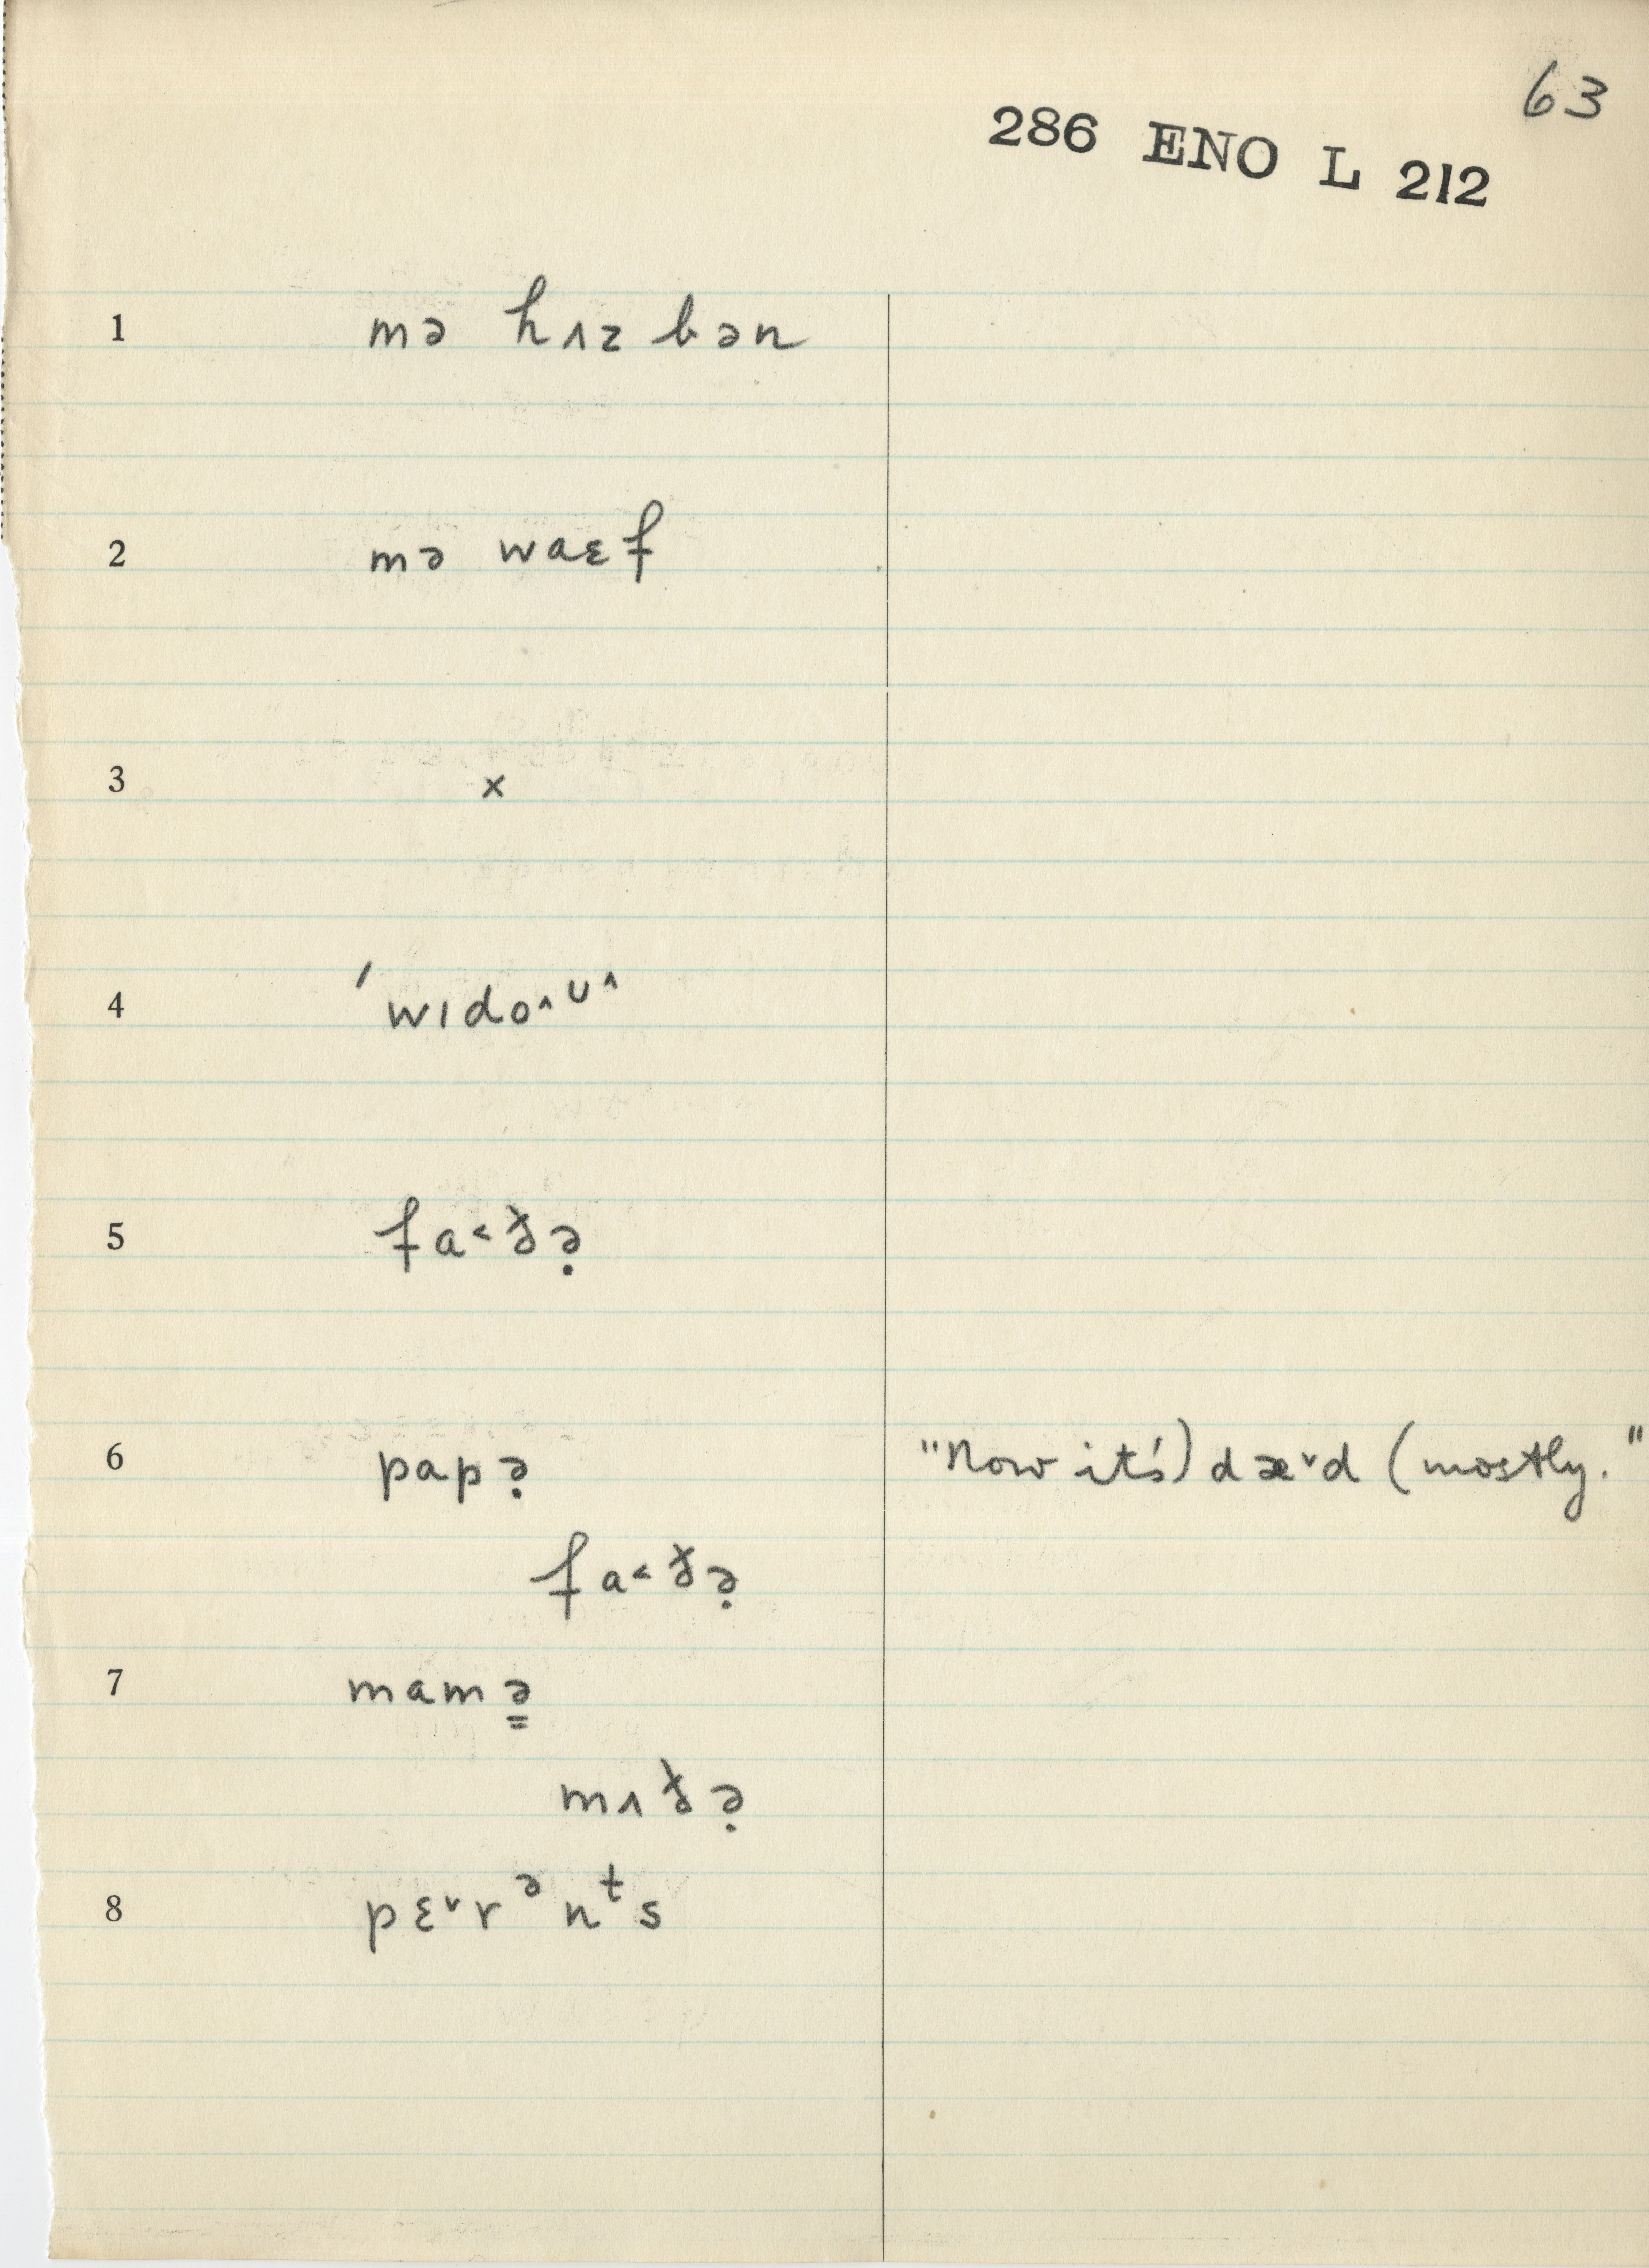 63
286 ENO L 212
1 mə hʌz bən
2 mə waɛf
3 x
4 ˈwɪdo^ᴜ^
5 fa˂ðə̣
6 papə̣ "Now it's) dæ˅d (mostly."
fa˂ðə̣
7 mamə̳
mʌðə̣
8 pɛ˅rᵊnᵗs